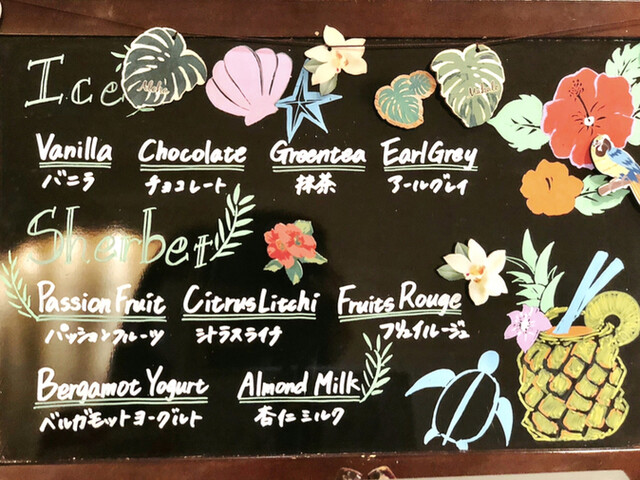 Ice
Aloha
Vanilla Chocolate Greentea Earl Grey
バニラ チョコレート 抹茶 アールグレイ
Sherbet
Passion Fruit Citrus Litchi Fruits Rouge
パッションフルーツ シトラスライチ フリュイルージュ
Bergamot Yogurt Almond Milk
ベルガモットヨーグルト 杏仁ミルク